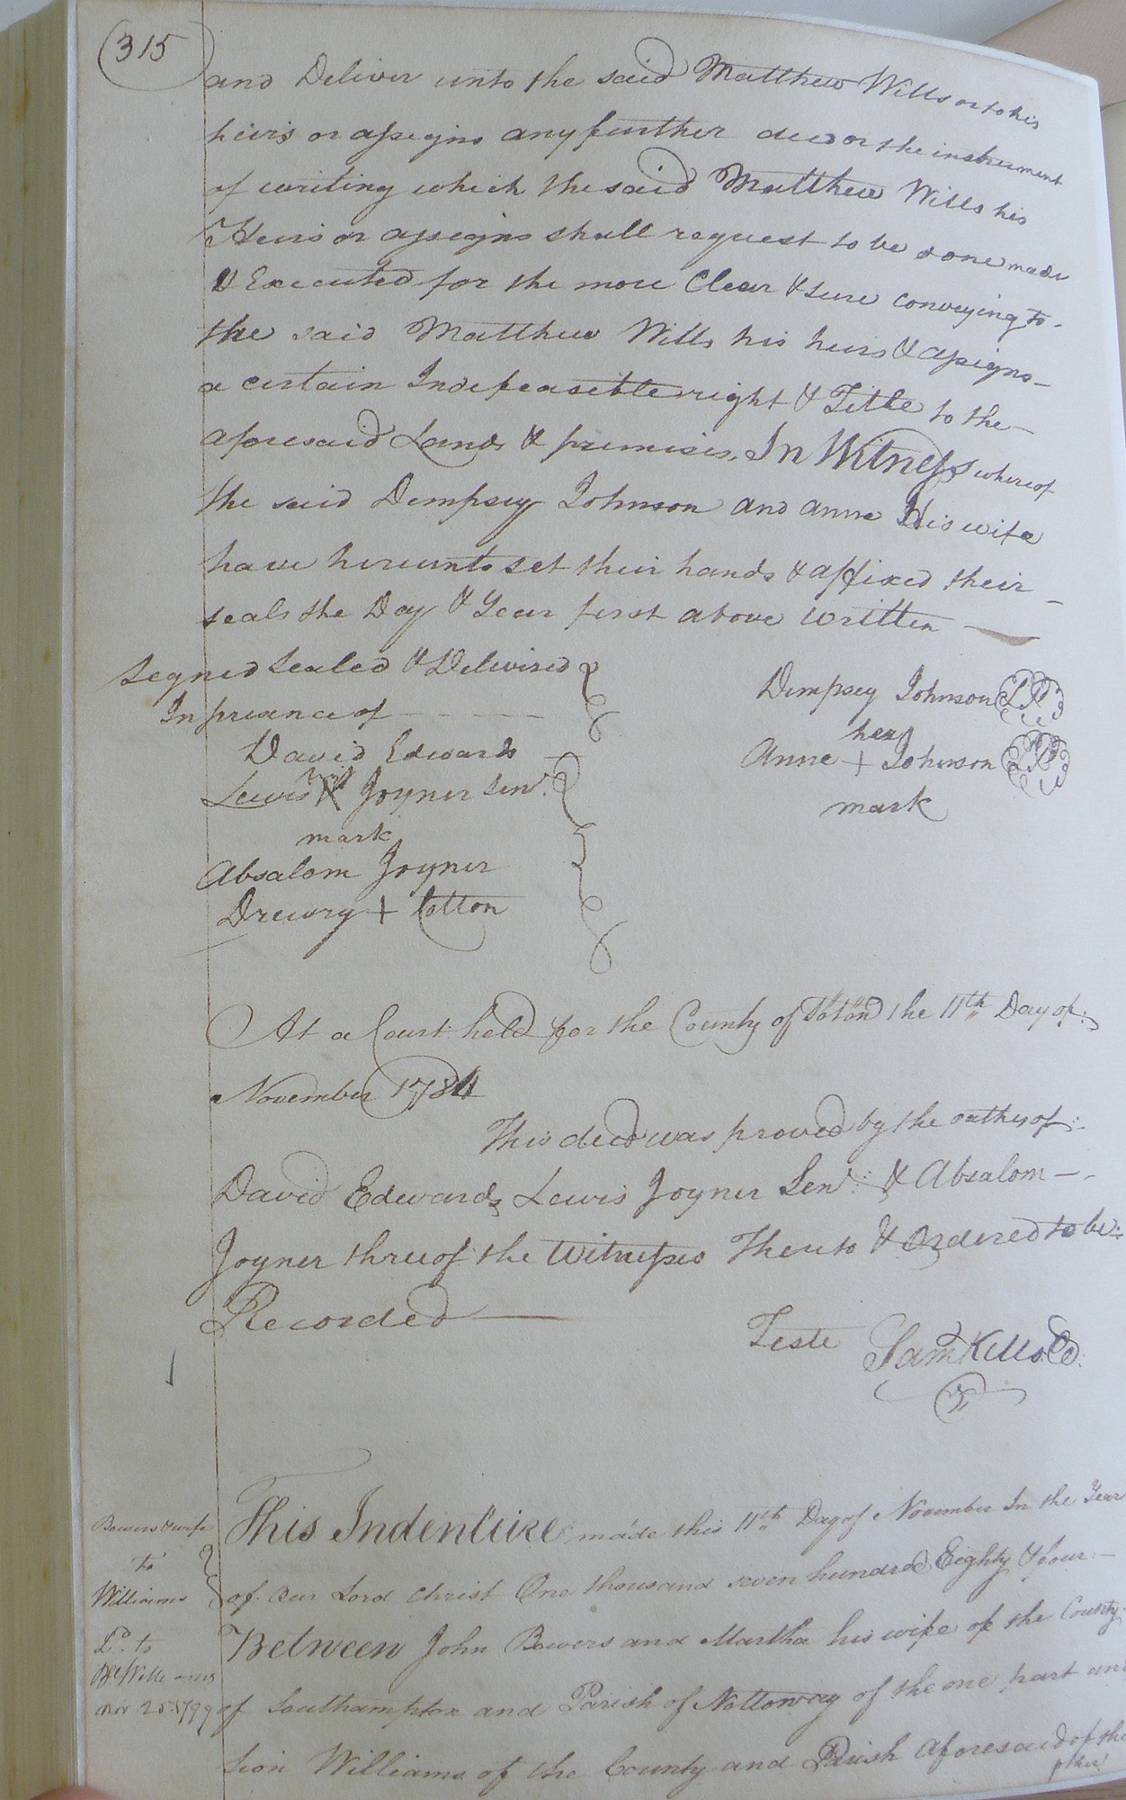 315
and Deliver unto the said Matthew Wills or to his
heirs or assigns any further deed or the instrument
of writing which the said Matthew Wills his
Heirs or assigns shall request to be done made
& Executed for the more Clear & sure conveying to
the said Matthew Wills his heirs & assigns
a certain Indefeasible right & Title to the
aforesaid Lands & premises, In Witness whereof
the said Dempsey Johnson and anne His wife
have hereunto set their hands & affixed their
seals the Day & Year first above written
Signed Sealed & Delivered
In presence of
David Edwards
Lewis Joyner Senr.
mark
Absalom Joyner
Drewry + Cotton
Dempsey Johnson LS
her
Anne + Johnson LS
mark
At a Court held for the County of Soton the 11th Day of
November 1784
This deed was proved by the oathes of
David Edwards Lewis Joyner Senr. & Absalom
Joyner three of the Witnesses Thereto & Ordered to be
Recorded
Teste Saml Kello CC
Bowers & wife
to
Williams
Do. to
Nov 25 1799
This Indenture made this 11th Day of November In the Year
of our Lord Christ One thousand seven hundred Eighty & four
Between John Bowers and Martha his wife of the County
of Southampton and Parish of Nottoway of the one part and
Lion Williams of the County and Parish aforesaid of the
other